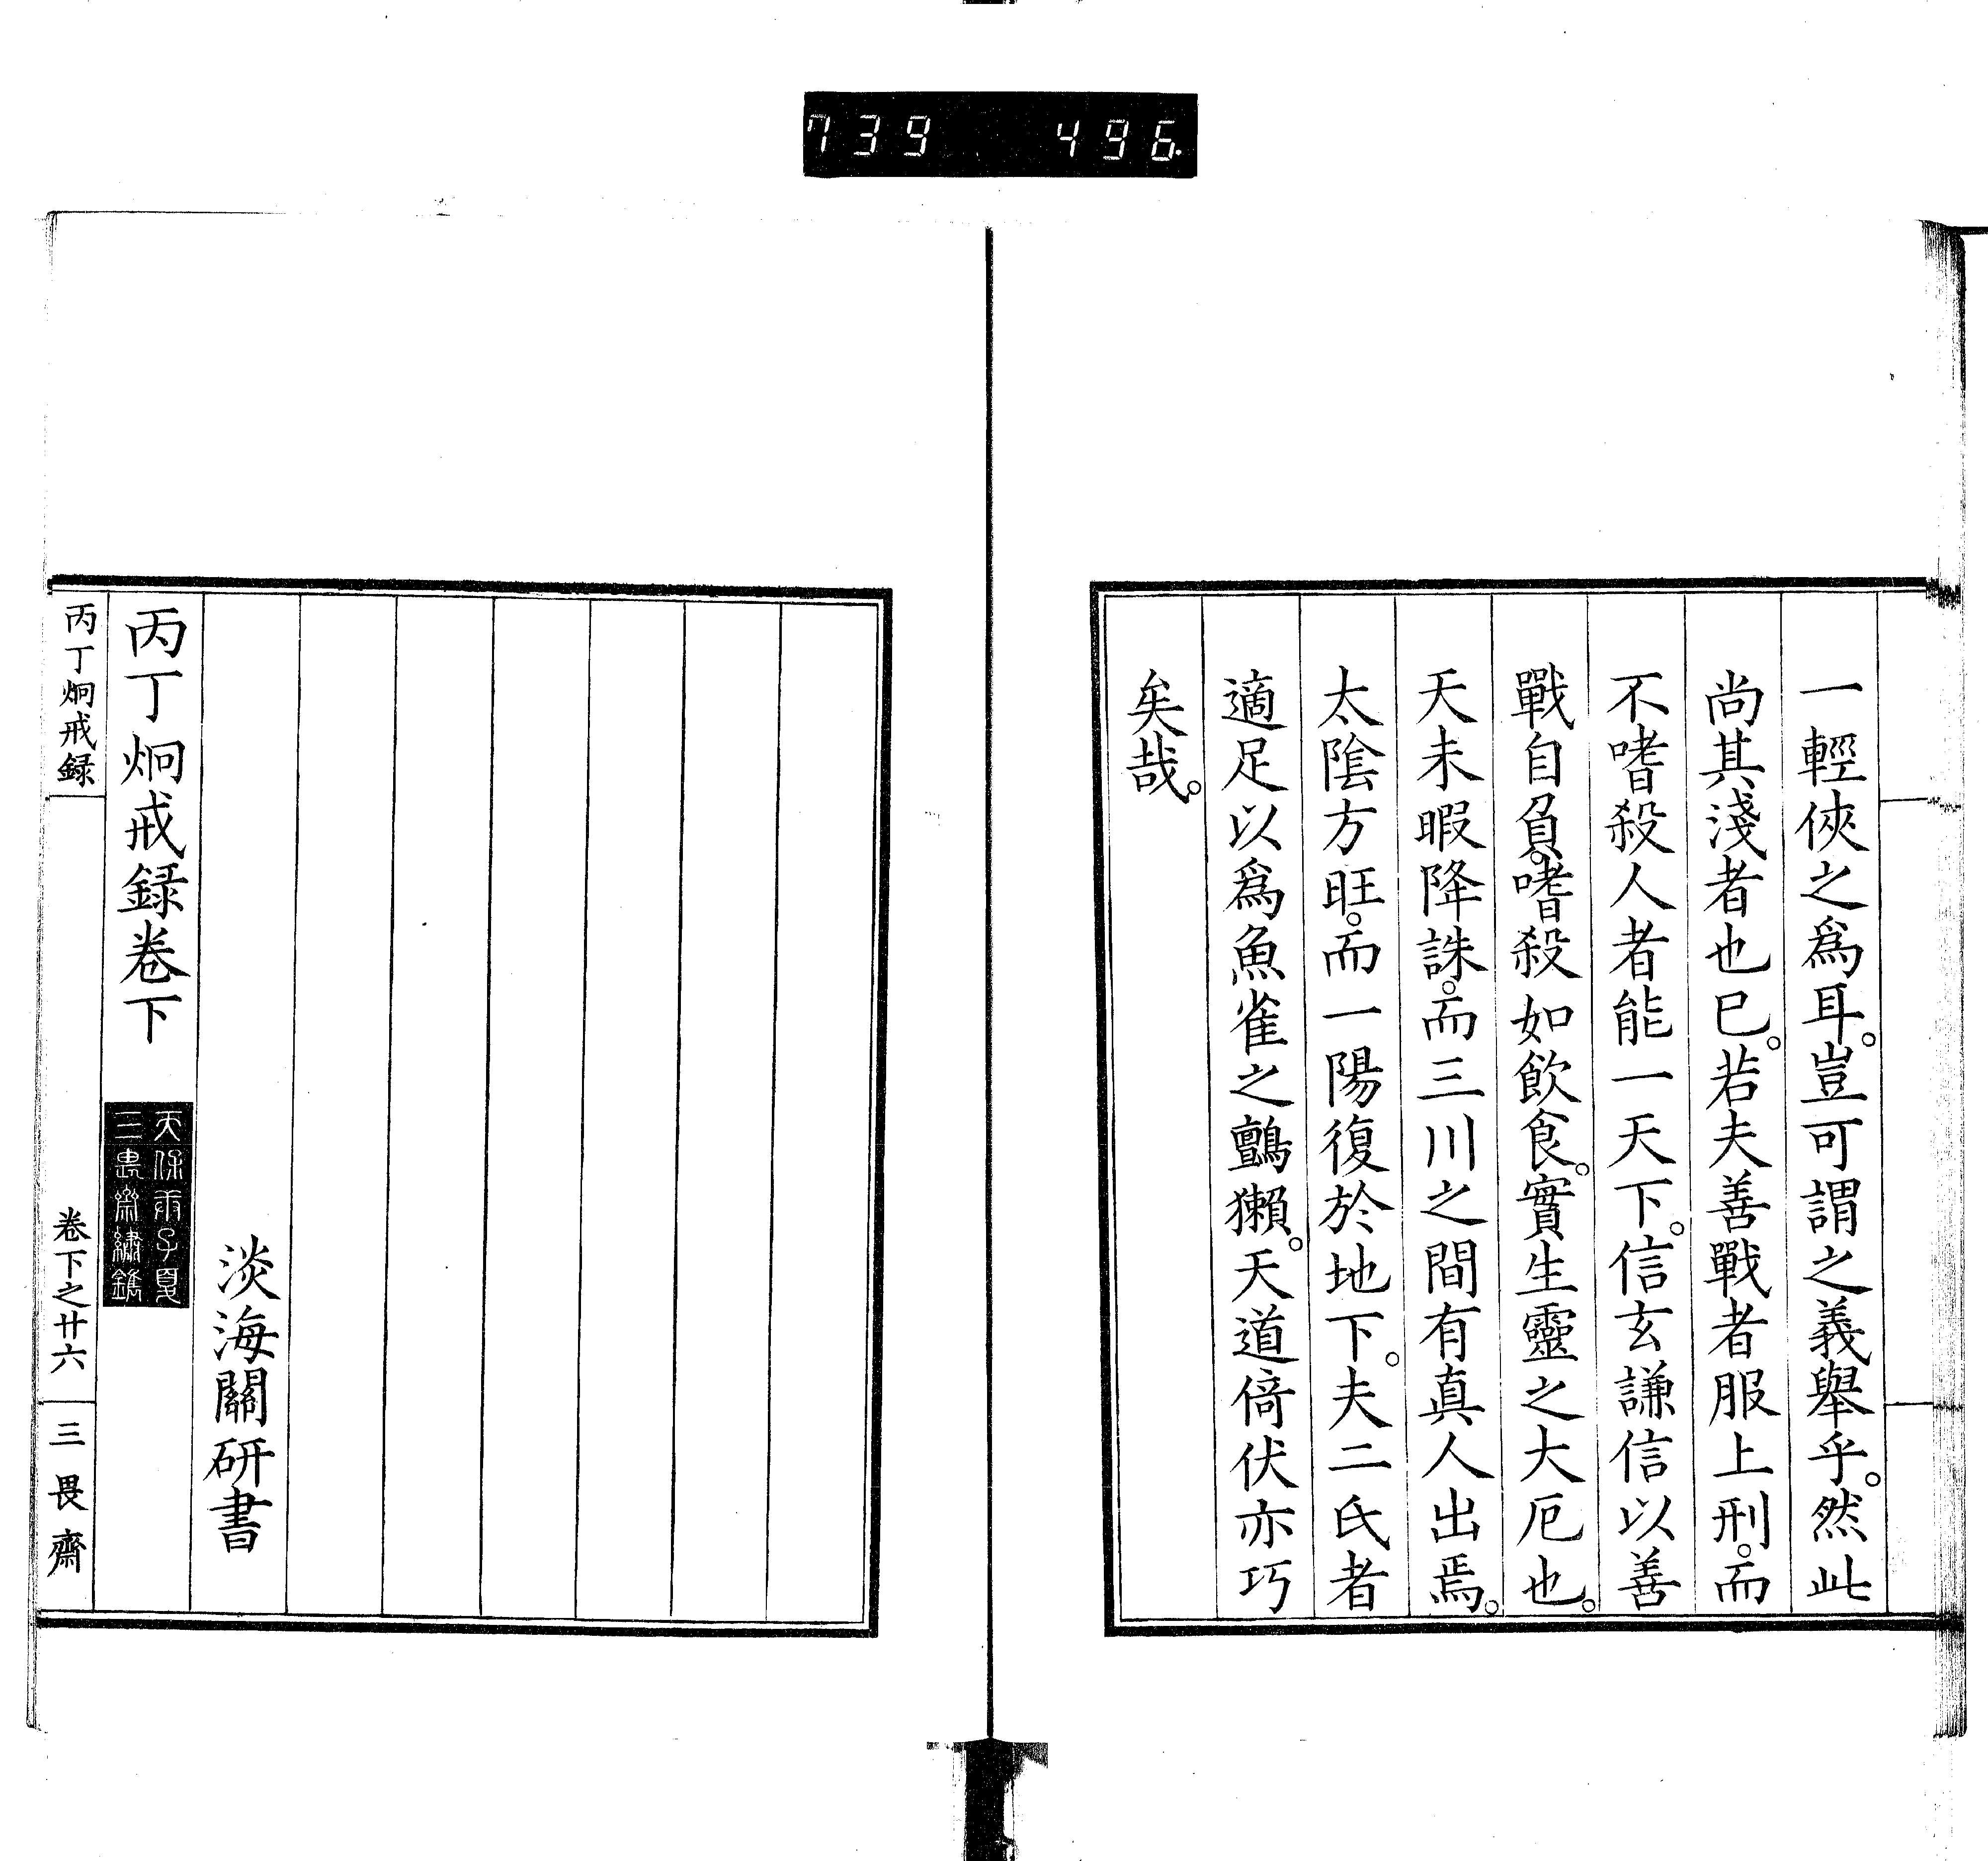 739 496.
一輕俠之爲耳。豈可謂之義擧乎。然此
尚其淺者也已。若夫善戰者服上刑。而
不嗜殺人者能一天下。信玄謙信以善
戰自負。嗜殺如飮食。實生靈之大厄也。
天未暇降誅。而三川之間有真人出焉。
太陰方旺。而一陽復於地下。夫二氏者
適足以爲魚雀之鸇獺。天道倚伏亦巧
矣哉。
淡海關研書
丙丁炯戒録卷下
天保庚子夏
三畏齋繡鐫
丙丁炯戒録
卷下之廿六
三畏齋